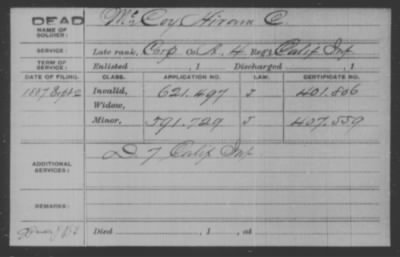 DEAD
NAME OF SOLDIER:
McCoy Hiram C.
SERVICE:
Late rank, Corp Co. A. 4 Reg't Calif Inf
TERM OF SERVICE:
Enlisted , 1 Discharged , 1
DATE OF FILING. CLASS. APPLICATION NO. LAW. CERTIFICATE NO.
1887 Sept 2 Invalid, 621.497 J 401.806
Widow,
Minor, 591.729 J 407.559
ADDITIONAL SERVICES:
D. 7 Calif Inf.
REMARKS:
Died , 1 , at